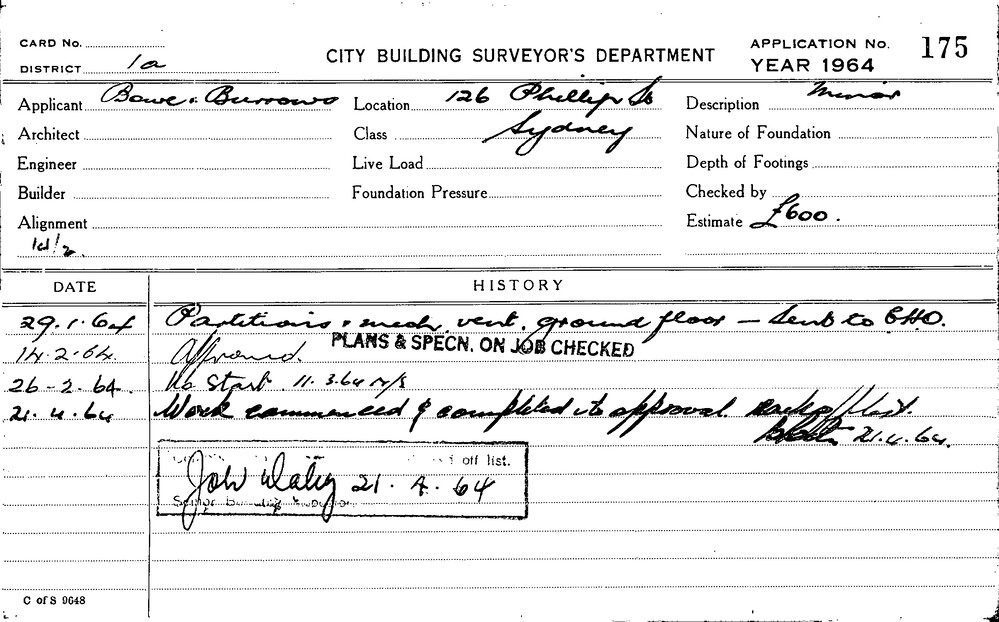 CARD No.
DISTRICT 1a
CITY BUILDING SURVEYOR'S DEPARTMENT
APPLICATION No. 175
YEAR 1964
Applicant Bowe & Burrows
Location 126 Phillip St
Sydney
Description Minor
Architect
Class
Nature of Foundation
Engineer
Live Load
Depth of Footings
Builder
Foundation Pressure
Checked by
Alignment
Estimate £600.
DATE
HISTORY
29.1.64 Partitions & mech. vent. ground floor — Sent to CHO.
14.2.64. Approved.
PLANS & SPECN. ON JOB CHECKED
26-2.64. No Start 11.3.64 N/S
21.4.64 Work commenced & completed to approval
21.4.64.
off list.
21.4.64
Senior Building
C of S 9648